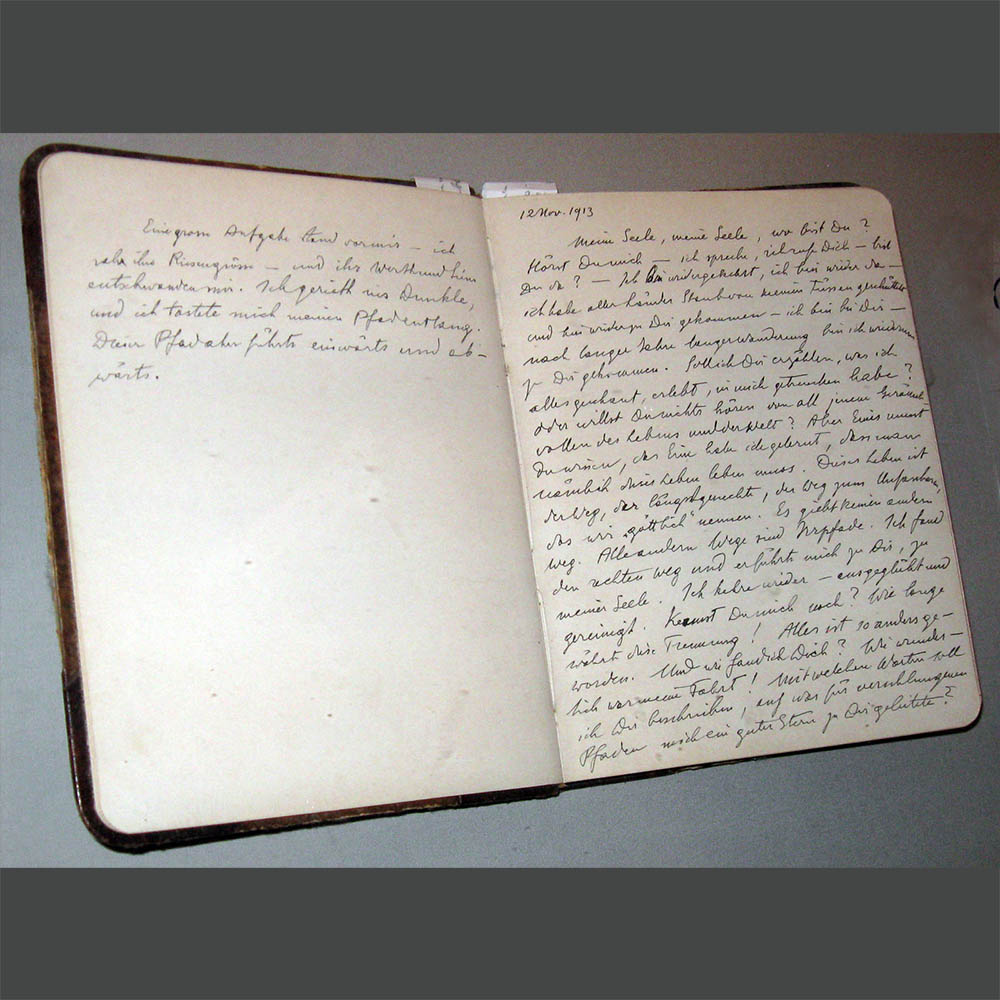 Eine grosse Aufgabe stand vor mir — ich
sah ihre Riesengrösse — und ihr Werth und Sinn
entschwanden mir. Ich gerieth ins Dunkle,
und ich tastete mich meinen Pfad entlang.
Dieser Pfad aber führte einwärts und ab-
wärts.
12 Nov. 1913
Meine Seele, meine Seele, wo bist Du?
Hörst Du mich — ich spreche, ich rufe Dich — bist
Du da? — Ich bin wiedergekehrt, ich bin wieder da —
ich habe aller Länder Staub von meinen Füssen geschüttelt
und bin wieder zu Dir gekommen — ich bin bei Dir —
nach langer Jahre langer Wanderung bin ich wieder
zu Dir gekommen. Soll ich Dir erzählen, was ich
alles geschaut, erlebt, in mich getrunken habe?
oder willst Du nichts hören von all jenem Geräusch-
vollen des Lebens und der Welt? Aber Eines musst
Du wissen, das Eine habe ich gelernt, dass man
nämlich dieses Leben leben muss. Dieses Leben ist
der Weg, der längstgesuchte, der Weg zum Unfassbaren,
das wir „göttlich" nennen. Es giebt keinen andern
Weg. Alle andern Wege sind Irrpfade. Ich fand
den rechten Weg und er führte mich zu Dir, zu
meiner Seele. Ich kehre wieder — ausgeglüht und
gereinigt. Kennst Du mich noch? Wie lange
währte diese Trennung! Alles ist so anders ge-
worden. Und wie fand ich Dich? Wie wunder-
lich war meine Fahrt! Mit welchen Worten soll
ich Dir beschreiben, auf was für verschlungenen
Pfaden mich ein guter Stern zu Dir geleitete?